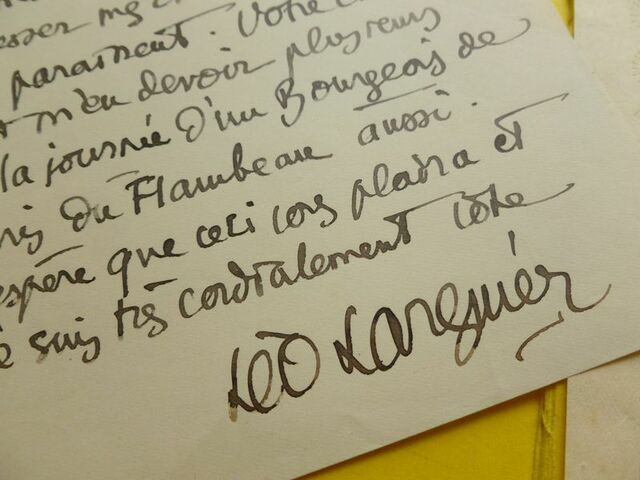 paraissent. Votre
m'en devoir plusieurs
la journée d'un Bourgeois de
du Flambeau aussi.
espère que ceci vous plaira et
suis très cordialement vôtre
Léo Larguier